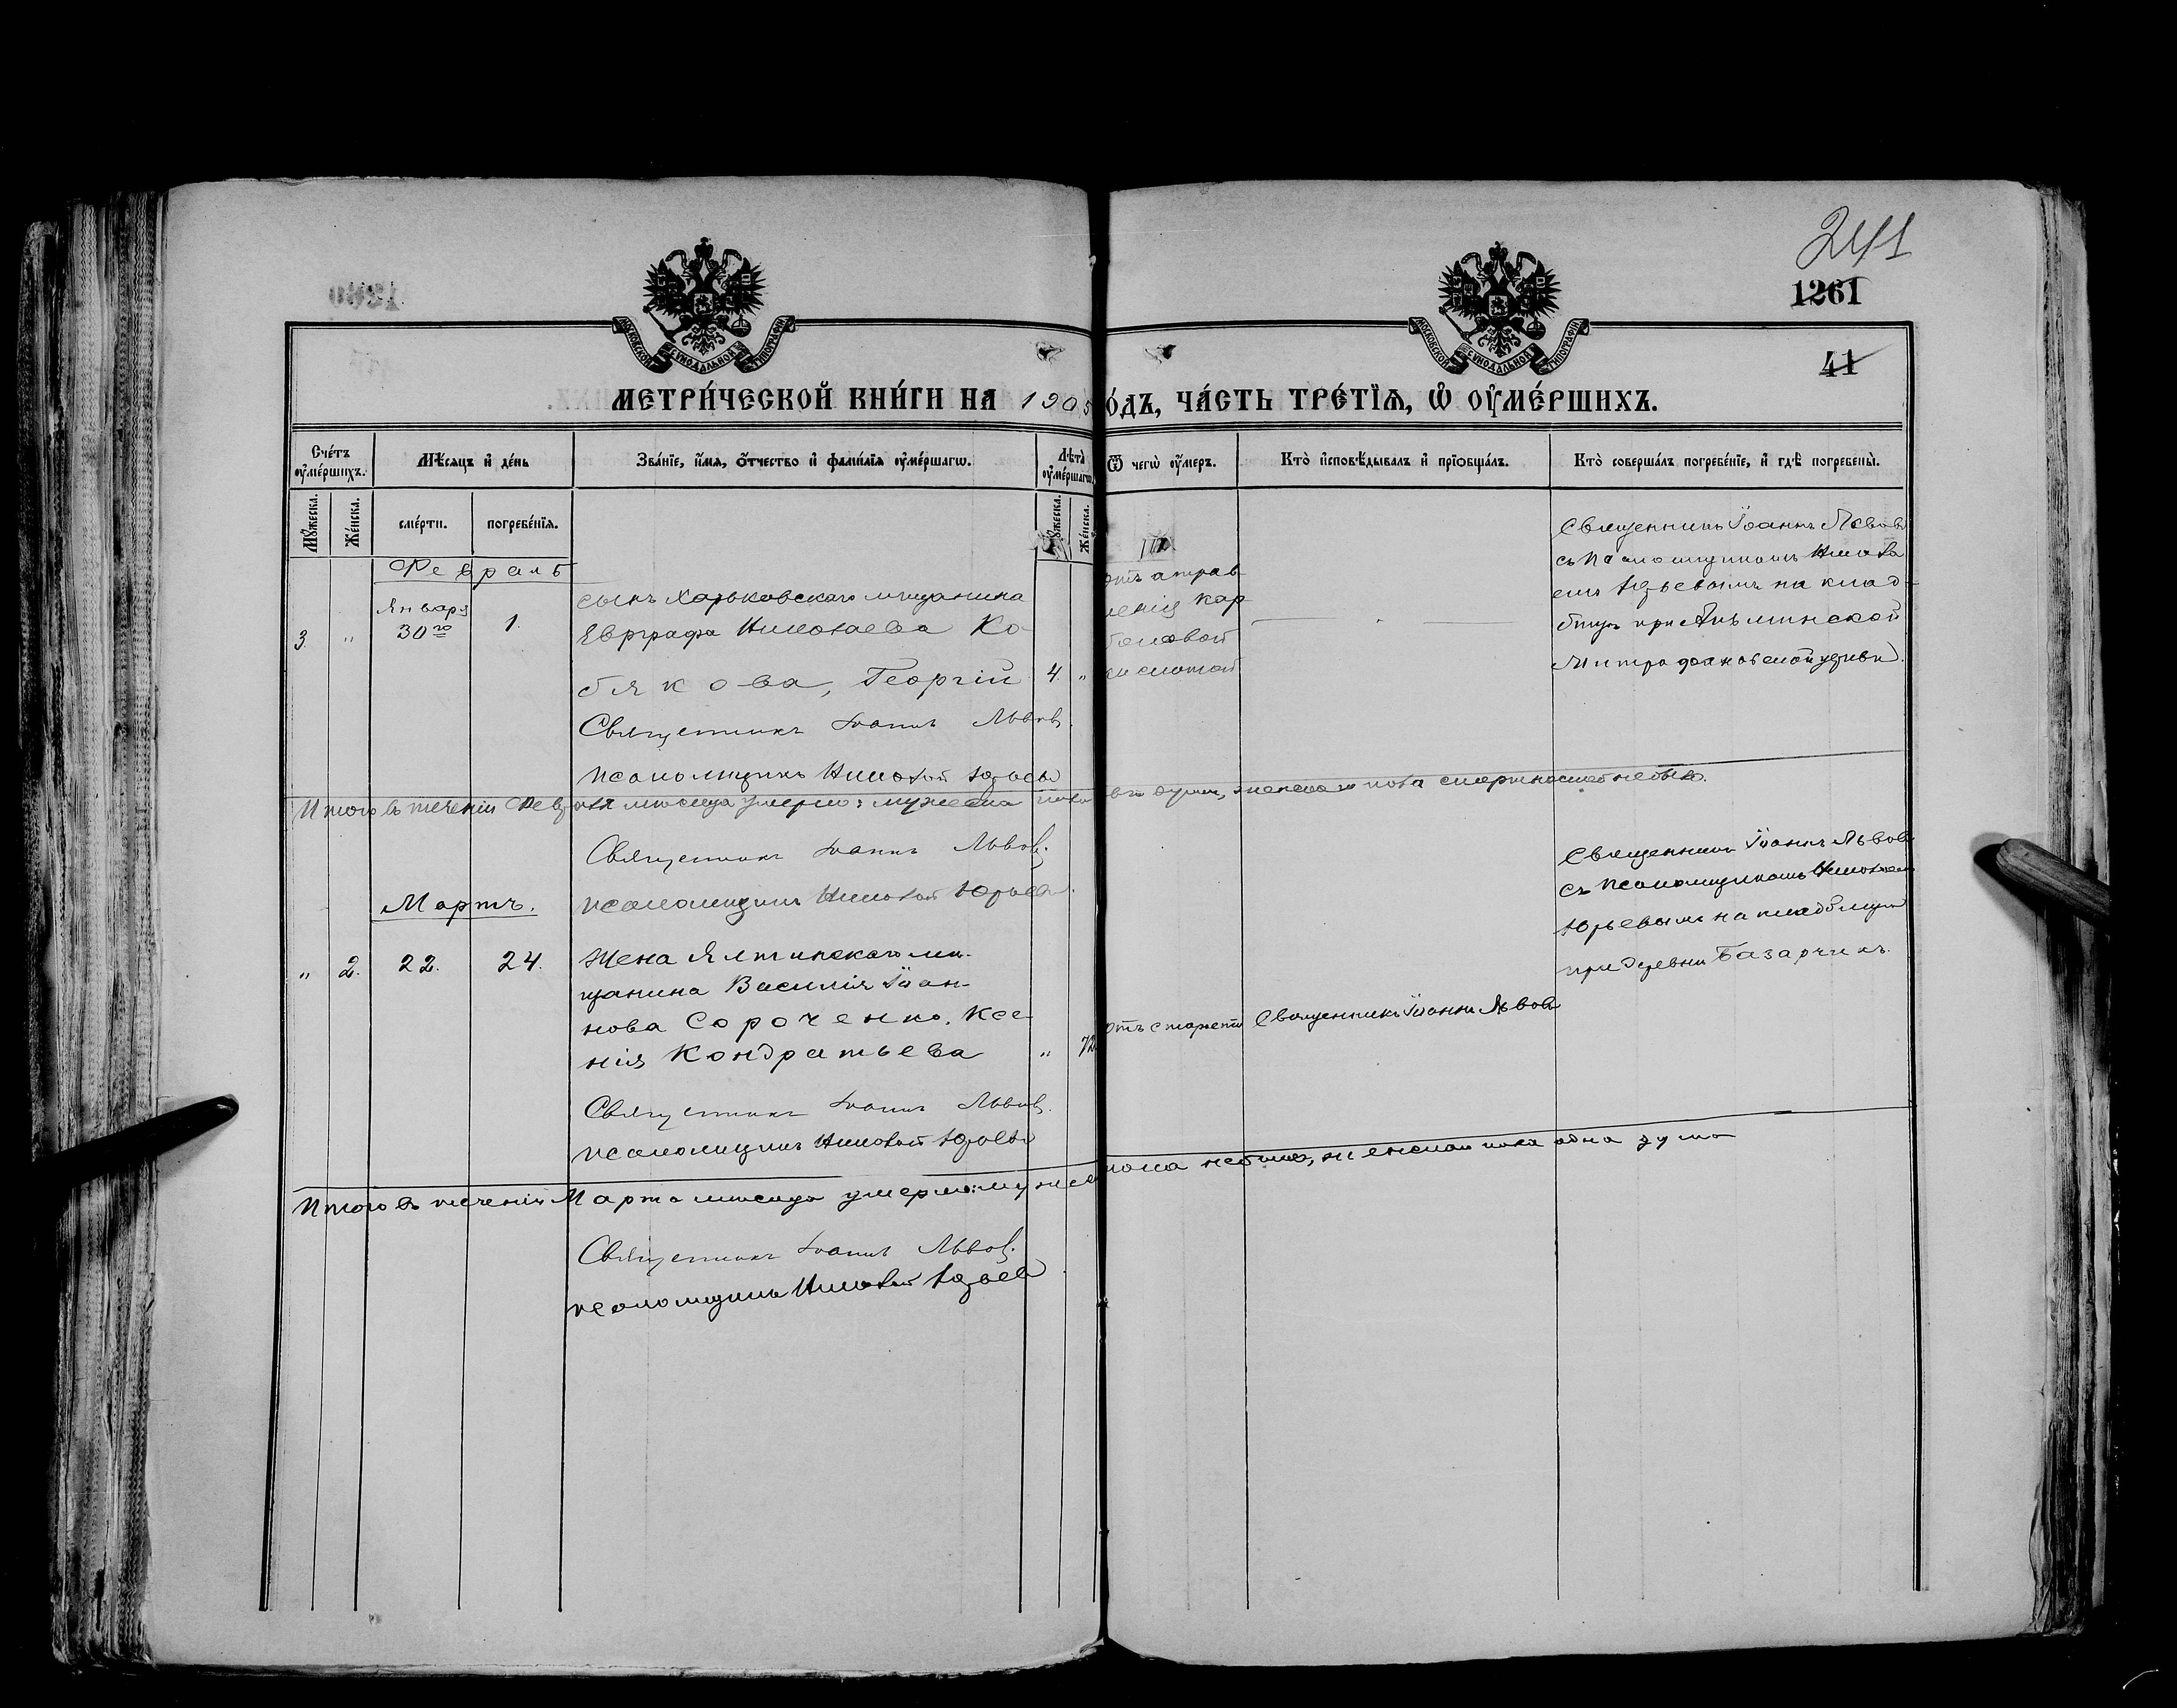 241
1261
41
МОСКОВСКОЙ СѴНОДАЛЬНОЙ ТИПОГРАФІИ
МОСКОВСКОЙ СѴНОДАЛЬНОЙ ТИПОГРАФІИ
МЕТРИ́ЧЕСКОЙ КНИ́ГИ НА 1905 О́ДЪ, ЧА́СТЬ ТРЕ́ТЇѦ, Ѡ҆ ОУ҆МЕ́РШИХЪ.
Сче́тъ оу҆ме́ршихъ.
Мѣ́сяцъ и҆ де́нь
Зва́нїе, и҆́мя, о҆́тчество и҆ фами́лїя оу҆ме́ршагѡ.
Лѣта̀ оу҆ме́ршагѡ
Ѿ чегѡ̀ оу҆́меръ.
Кто̀ и҆сповѣ́дывалъ и҆ прїѡбща́лъ.
Кто̀ соверша́лъ погребе́нїе, и҆ гдѣ̀ погребены̀.
Мꙋ́жеска.
Же́нска.
сме́рти.
погребе́нїя.
Мꙋ́жеска.
Же́нска.
Февраль
3. " Января 30го 1.
сынъ Харьковскаго мѣщанина
Евграфа Николаева Ко-
бякова, Георгій 4. "
отъ отрав
ленія кар
боловой
кислотой
Священникъ Іоаннъ Львовъ
съ псаломщикомъ Никола
емъ Юрьевымъ на клад-
бищѣ при Альминской
Митрофановской церкви.
Священникъ Іоаннъ Львовъ.
псаломщикъ Николай Юрьевъ
Итого въ теченіи Февраля мѣсяца умерло: мужеска пола душа, женскаго пола смертностей не было.
Священникъ Іоаннъ Львовъ.
псаломщикъ Николай Юрьевъ.
Мартъ.
" 2. 22. 24.
Жена Ялтинскаго мѣ-
щанина Василія Іоан-
нова Сороченко, Ксе-
нія Кондратьева " 72
отъ старости
Священникъ Іоаннъ Львовъ
Священникъ Іоаннъ Львовъ
съ псаломщикомъ Николаемъ
Юрьевымъ на кладбищѣ
при деревни Базарчикъ.
Священникъ Іоаннъ Львовъ.
псаломщикъ Николай Юрьевъ
Итого въ теченіи Марта мѣсяца умерло: мужес пола не было, женскаго пола одна душа
Священникъ Іоаннъ Львовъ.
псаломщикъ Николай Юрьевъ